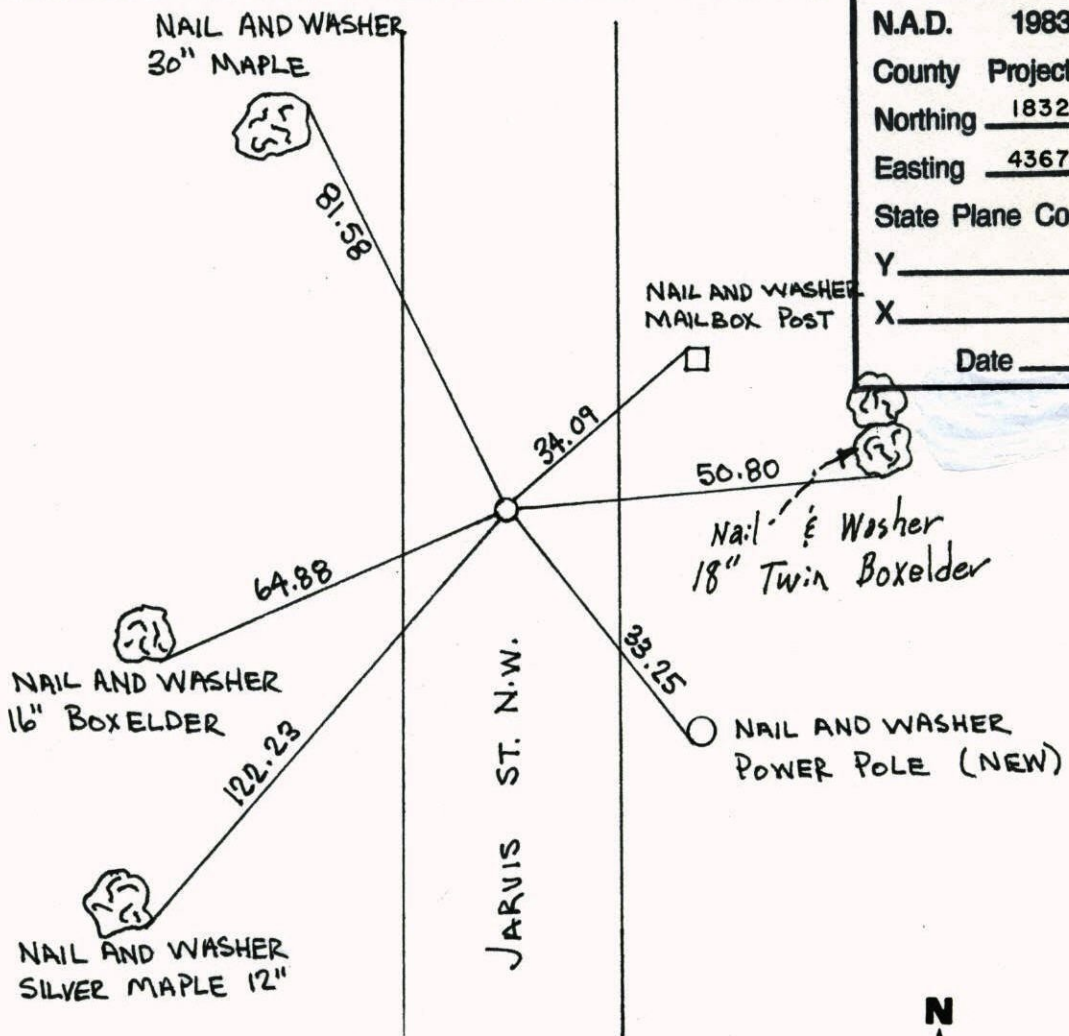 NAIL AND WASHER
30" MAPLE
N.A.D. 1983
County Project
Northing 1832
Easting 4367
State Plane Co
Y
X
Date
81.58
NAIL AND WASHER
MAILBOX POST
34.09
50.80
Nail & Washer
18" Twin Boxelder
64.88
NAIL AND WASHER
16" BOXELDER
33.25
NAIL AND WASHER
POWER POLE (NEW)
122.23
JARVIS ST. N.W.
NAIL AND WASHER
SILVER MAPLE 12"
N